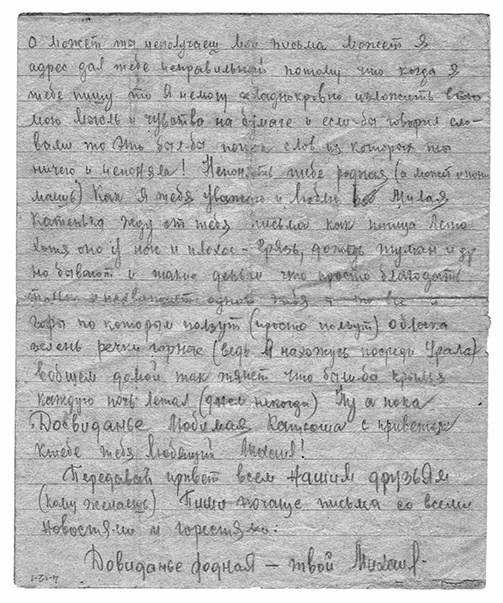 О может ты неполучаеш мои письма может я
адрес дал тебе неправильный потому что когда я
тебе пишу то я немогу хладнокровно изложить всю
мою мысль и чувства на бумаге и если-бы говорил сло-
вами то это был-бы поток слов из которых ты
ничего и непоняла! Непонять тебе родная (а может и пони
маешь) Как я тебя уважаю и люблю Милая
Катенька жду от тебя письма как птица Лето
хотя оно у нас и плохое - Грязь, дождь туман и др
но бывают и такие деньки что просто благодать
только нехватает одной тебя а то все и
горы по которым ползут (просто ползут) облака
зелень речки горные (ведь я нахожусь посреди Урала)
вобщем домой так тянет что были-бы крылья
каждую ночь летал (днем некогда) Ну а пока
Досвиданье Любимая Катюша с приветом
ктебе тебя Любящий Михаил!
Передавай привет всем нашим друзьям
(кому желаешь) Пиши почаще письма со всеми
новостями и горестями.
Довиданье родная - твой Михаил.